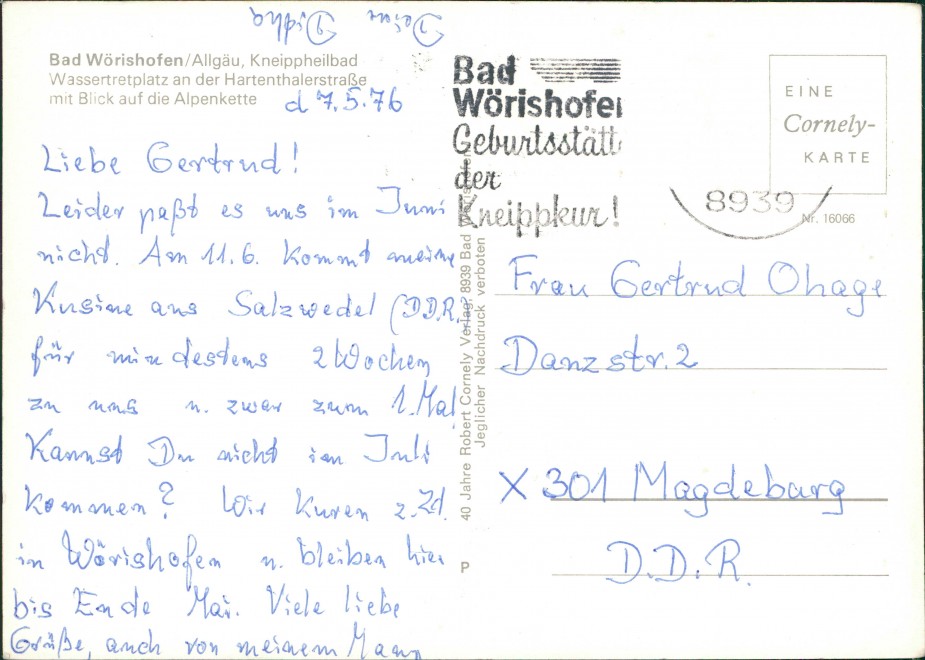 Bad Wörishofen/Allgäu, Kneippheilbad
Wassertretplatz an der Hartenthalerstraße
mit Blick auf die Alpenkette
d 7.5.76
Liebe Gertrud!
Leider paßt es uns im Juni
nicht. Am 11.6. kommt meine
Kusine aus Salzwedel (D.D.R.)
für mindestens 2 Wochen
zu uns u. zwar zum 1. Mal.
Kannst Du nicht im Juli
kommen? Wir kuren z.Zt.
in Wörishofen u. bleiben hier
bis Ende Mai. Viele liebe
Grüße, auch von meinem Mann
Deine
Bad
Wörishofen
Geburtsstätte
der
Kneippkur!
8939
EINE
Cornely-
KARTE
Nr. 16066
40 Jahre Robert Cornely Verlag, 8939 Bad Wörishofen
Jeglicher Nachdruck verboten
P
Frau Gertrud Ohage
Danzstr. 2
X 301 Magdeburg
D.D.R.